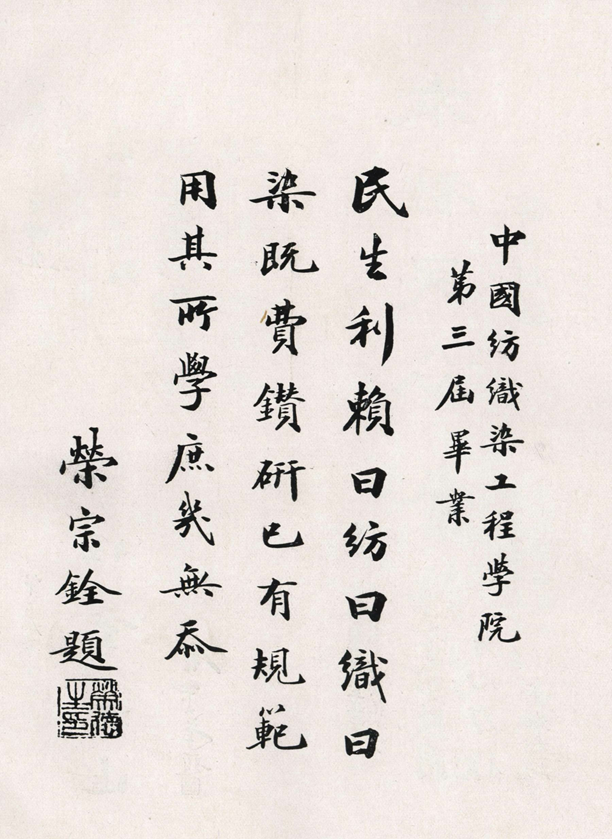 中國紡織染工程學院
第三屆畢業
民生利賴曰紡曰織曰
染既費鑚研已有規範
用其所學庶幾無忝
榮宗銓題
榮德生印